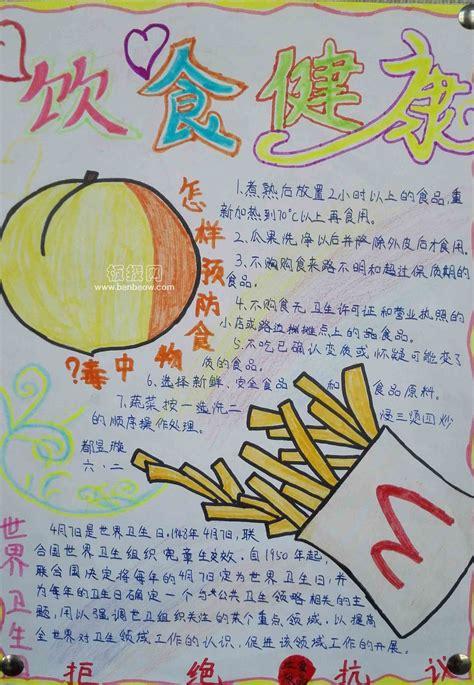 饮食健康
怎样预防食
物中毒?
板报网
www.banbeow.com
1.煮熟后放置2小时以上的食品,重
新加热到70℃以上再食用。
2.瓜果洗净以后并除外皮后才食用。
3.不购食来路不明和超过保质期的
食品。
4.不购食无卫生许可证和营业执照的
小店或路边摊点上的食品。
5.不吃已确认变质或怀疑可能变了
质的食品。
6.选择新鲜、安全食品和食品原料。
7.蔬菜按一选洗二 浸三烫四炒
的顺序操作处理。
六·二
世界卫生日
4月7日是世界卫生日,1948年4月7日,联
合国世界卫生组织宪章生效。自1950年起,
联合国决定将每年的4月7日定为世界卫生日,并
为每年的卫生日确定一个与公共卫生领域相关的主
题,用以强调世卫组织关注的某个重点领域,以提高
全世界对卫生领域工作的认识,促进该领域工作的开展。
拒绝 抗议